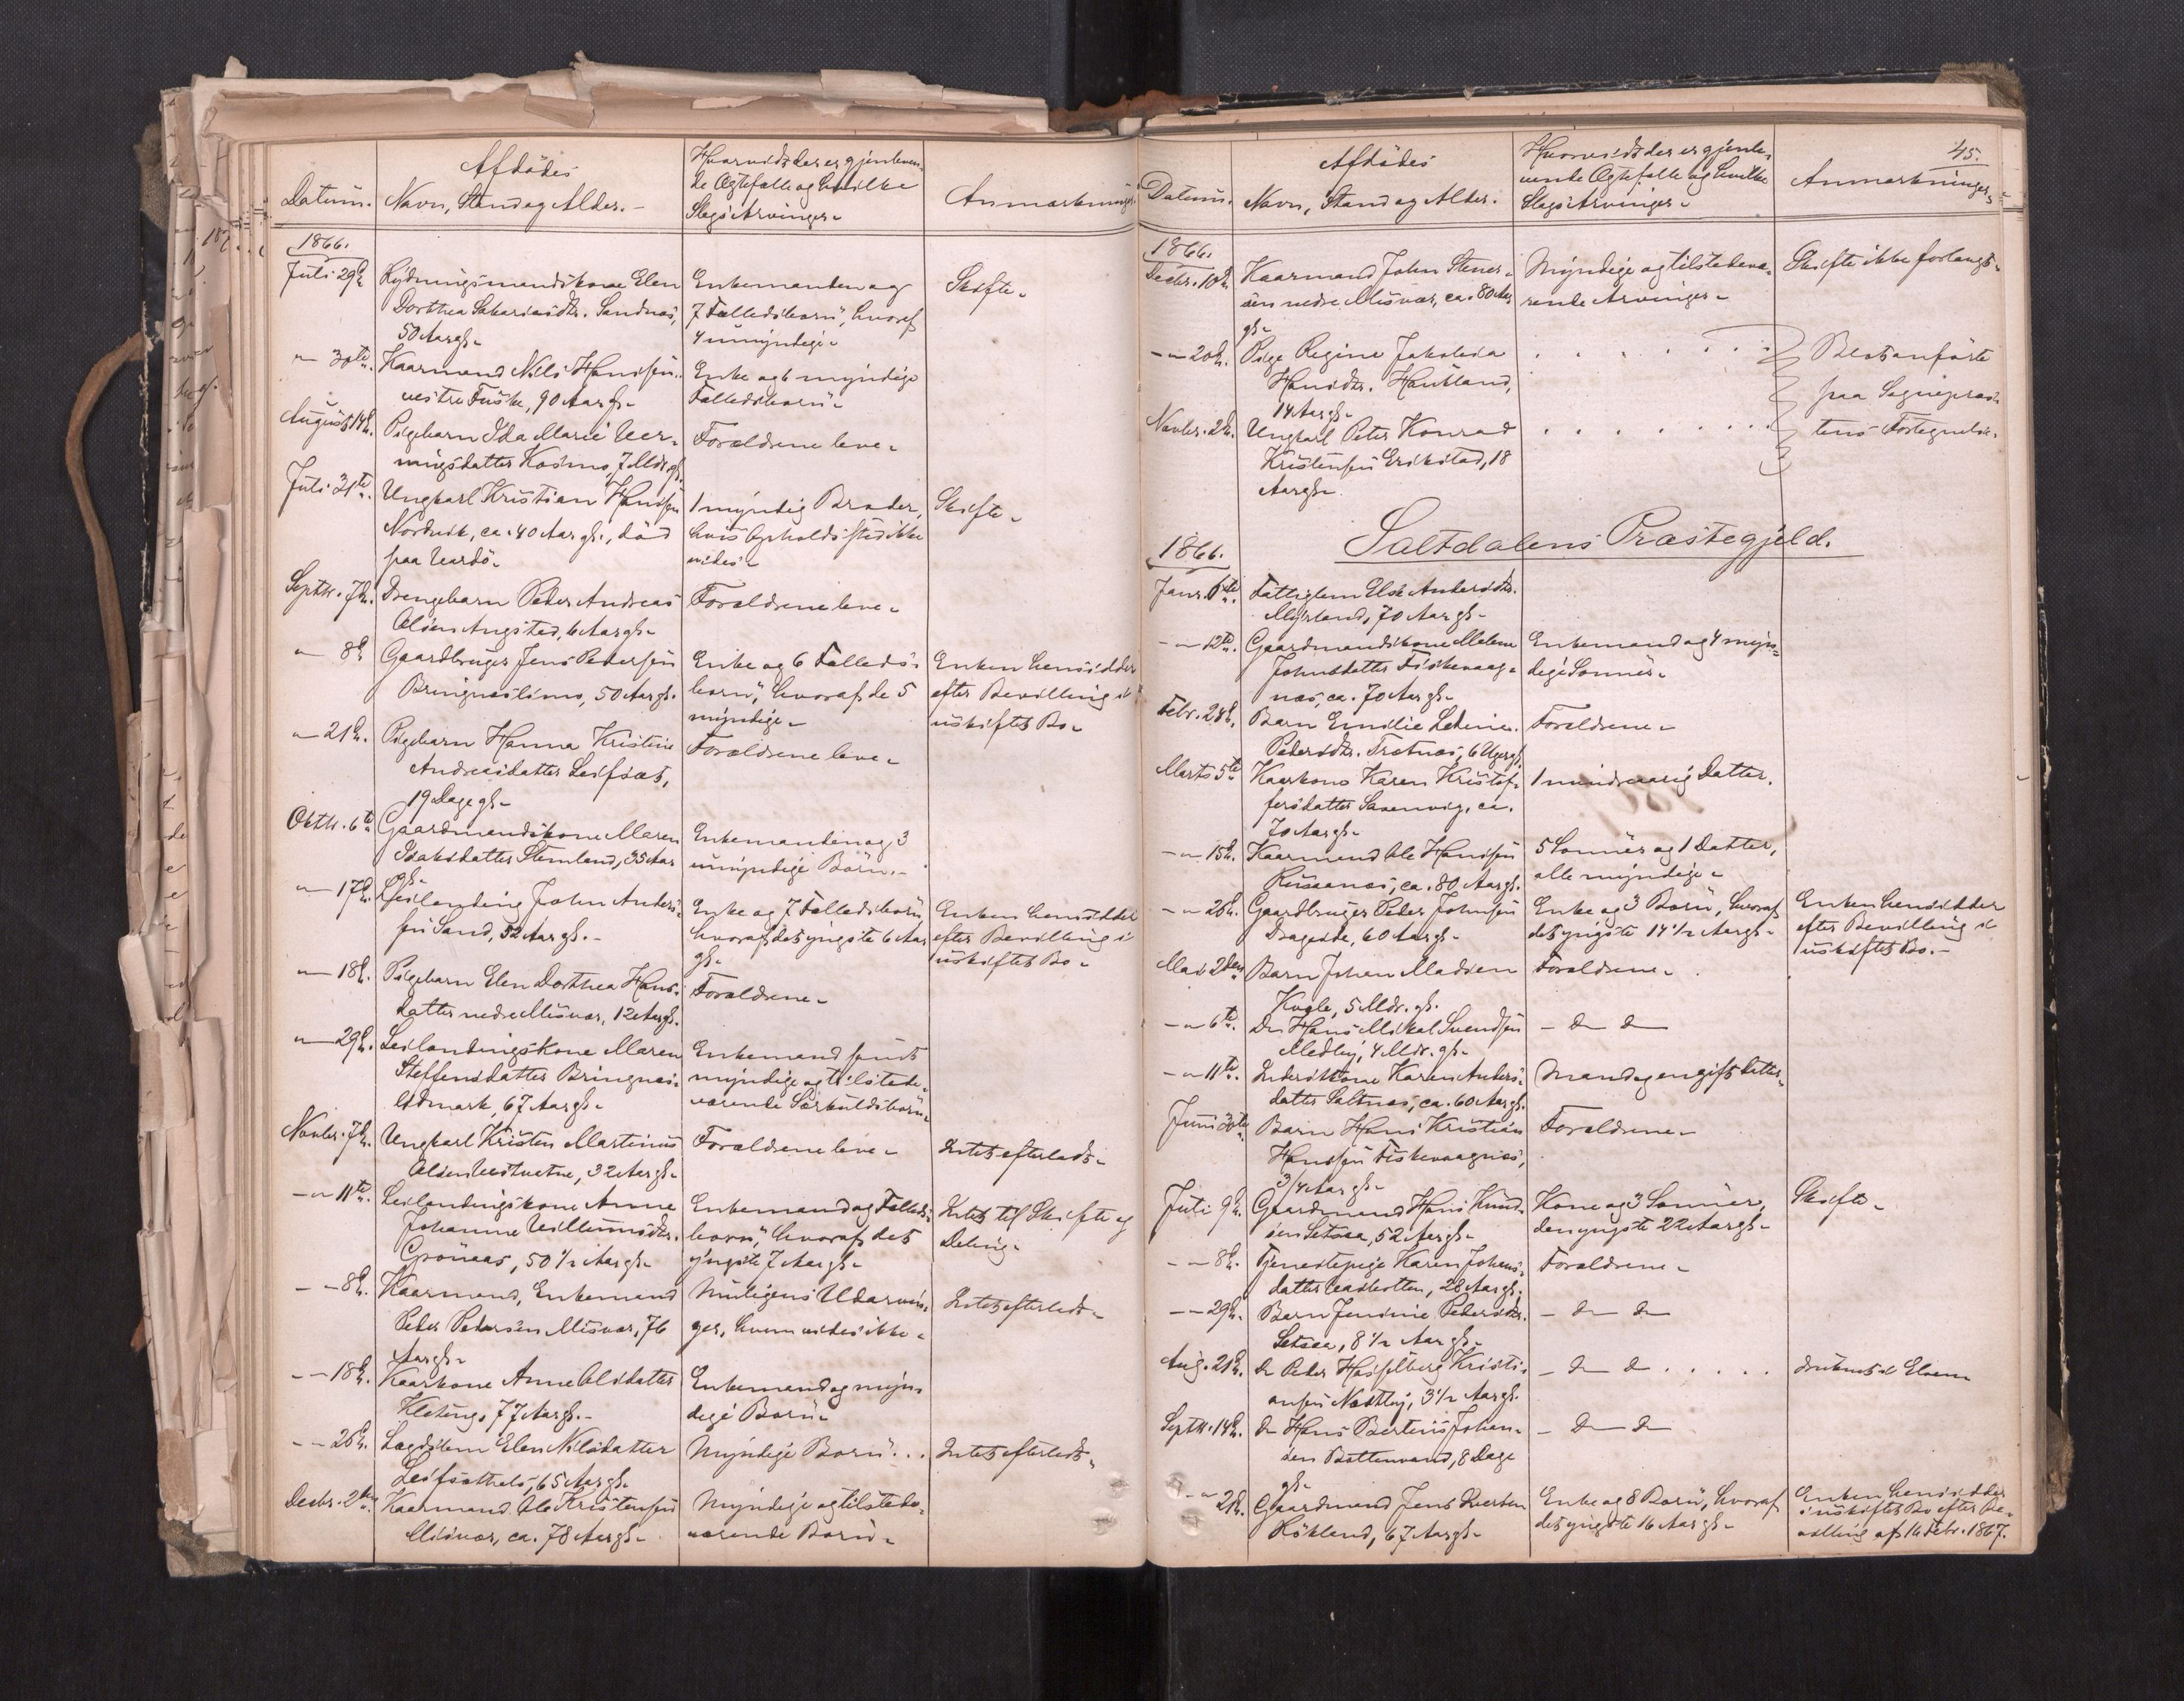 Afdødes
Datum.
Navn, Stand og Alder.-
Hvorvidt der er gjenleven-
de Ægtefælle og hvilke
Slags Arvinger-
Anmærkninger.
1866.
Juli 29de
Rydningsmandskone Elen
Dorthea Sakariasdtr. Sandnæs,
50 Aar gl.-
Enkemanden og
7 Fællesbørn, hvoraf
4 umyndige-
Skifte-
-"- 30te.
Kaarmand Nils Hansen
vestre Fuske, 90 Aar gl.-
Enke og 6 myndige
Fællesbørn-
August 14de.
Pigebarn Ida Marie
ningsdatter Kosmo, 7 Mdr. gl.
Forældrene leve-
Juli 31te.
Ungkarl Kristian Hansen
Nordvik, ca. 40 Aar gl., død
paa Vardø-
1 myndig Broder,
hvis Opholdssted ikke
vides-
Skifte-
Septbr. 7de.
Drengebarn Peder Andreas
Olsen Angsted, 6 Aar gl.-
Forældrene leve-
-"- 8de
Gaardbruger Jens Pedersen
Bringneslimo, 50 Aar gl.
Enke og 6 Fælleds-
børn, hvoraf de 5
myndige-
Enken hensidder
efter Bevilling i
uskiftet Bo-
-"- 21de.
Pigebarn Hanna Kristine
Andreasdatter Leifset,
19 Dage gl-
Forældrene leve-
Oktbr. 6te
Gaardmandskone Maren
Isaksdatter Stemland, 35 Aar
gl-
Enkemanden og 3
umyndige Børn.-
-"- 17de.
Leilending John Anders-
sen Sand, 52 Aar gl.-
Enke og 7 Fælledsbørn
hvoraf det yngste 6 Aar
gl-
Enken hensidder
efter Bevilling i
uskiftet Bo-
-"- 18de.
Pigebarn Elen Dorthea Hans-
datter nedre Misvær, 12 Aar gl.
Forældrene-
-"- 29de.
Leilendingskone Maren
Steffensdatter Bringnes-
odmark, 67 Aar gl-
Enkemand samt
myndige og tilstede-
værende Særkuldsbørn-
Novbr. 7de.
Ungkarl Kristen Martinus
Olsen Vestvatne, 32 Aar gl-
Forældrene leve-
Intet efterladt-
-"- 11te.
Leilendingskone Anne
Johanna Villumsdtr.
Grønaas, 50 1/2 Aar gl-
Enkemand og Fælleds-
børn, hvoraf det
yngste 7 Aar gl-
Intet til Skifte og
Deling-
- - 8de.
Kaarmand, Enkemand
Peder Pedersen Misvær, 76
Aar gl-
Muligens Udarvin-
ger, hvem vides ikke-
Intet efterladt-
- - 18de.
Kaarkone Anne Olsdatter
Kletung, 77 Aar gl.-
Enkemand og myn-
dige Børn-
- - 26de.
Lægdslem Elen Nilsdatter
Leifsethals, 65 Aar gl-
Myndige Børn . . .
Intet efterladt-
Decbr. 2den
Kaarmand Ole Kristensen
Misvær, ca. 78 Aar gl-
Myndige og tilstede-
værende Børn-
45.
Afdødes
Datum.
Navn, Stand og Alder.
Hvorvidt der er gjenle-
vende Ægtefælle og hvilke
Slags Arvinger-
Anmærkninger
1866.
Decbr. 10de.
Kaarmand John Stener-
sen nedre Misvær, ca. 80 Aar
gl-
Myndige og tilstedevæ-
rende Arvinger-
Skifte ikke forlangt-
- " 20de.
Pige Regine Jakobea
Hansdtr. Haukland,
14 Aar gl-
Blot anførte
paa Sognepræs-
tens Fortegnelse.
Novbr. 2de.
Ungkarl Peter Konrad
Kristensen Erikstad, 18
Aar gl-
Saltdalens Præstegjeld.
1866.
Janr. 6te
Fattiglem Else Andersdtr.
Myrland, 70 Aar gl-
- " 12te.
Gaardmandskone Malene
Johnsdatter Fiskevaag-
næs, ca. 70 Aar gl-
Enkemand og 4 myn-
dige Sønner-
Febr. 28de.
Barn Emilie
Pedersdtr. Trætnæs, 6 Uger gl.
Forældrene-
Marts 5te
Kaarkone Karen Kristof-
fersdatter Saxenvig, ca.
70 Aar gl-
1 mindreaarig Datter.
- " 15de.
Kaarmand Ole Hansen
Russaanæs, ca. 80 Aar gl.
5 Sønner og 1 Datter,
alle myndige-
- " 26de.
Gaardbruger Peder Johnsen
Drageide, 60 Aar gl-
Enke og 3 Børn, hvoraf
det yngste 14 1/2 Aar gl-
Enken hensidder
efter Bevilling i
uskiftet Bo.-
Mai 2den
Barn Johan Madsen
Kvæle, 5 Mdr. gl.
Forældrene-
- " 6te.
Do Hans Mikal Svendsen
Medby, 4 Mdr. gl-
- do do
- " 11te.
Inderstkone Karen Anders-
datter Saltnæs, ca. 60 Aar gl.
Mand og en gift Datter-
Juni 30te
Barn Hans Kristian
Hansen Fiskevaagnæs,
3/4 Aar gl-
Forældrene-
Juli 9de
Gaardmand Hans Knud-
sen Setsaa, 52 Aar gl-
Kone og 3 Sønner,
den yngste 22 Aar gl-
Skifte-
- - 8de.
Tjenestepige Karen Johans-
datter Vasbotten, 28 Aar gl.
Forældrene-
- - 29de.
Barn Jensine Pedersdtr.
Setsaa, 8 1/2 Aar gl-
- do do
Aug. 21de.
Do Peder Hasselberg Kristi-
ansen Næstby, 3 1/2 Aar gl.
- do do . . . . .
druknet i Elven
Septbr. 14de.
Do Hans Bertius Johan-
sen Bottenvand, 8 Dage
gl-
- do do
- " 21de.
Gaardmand Jens Evertsen
Rökland, 67 Aar gl-
Enke og 8 Børn, hvoraf
det yngste 16 Aar gl-
Enken hensidder
i uskiftet Bo efter Be-
villing af 16 Febr. 1867.